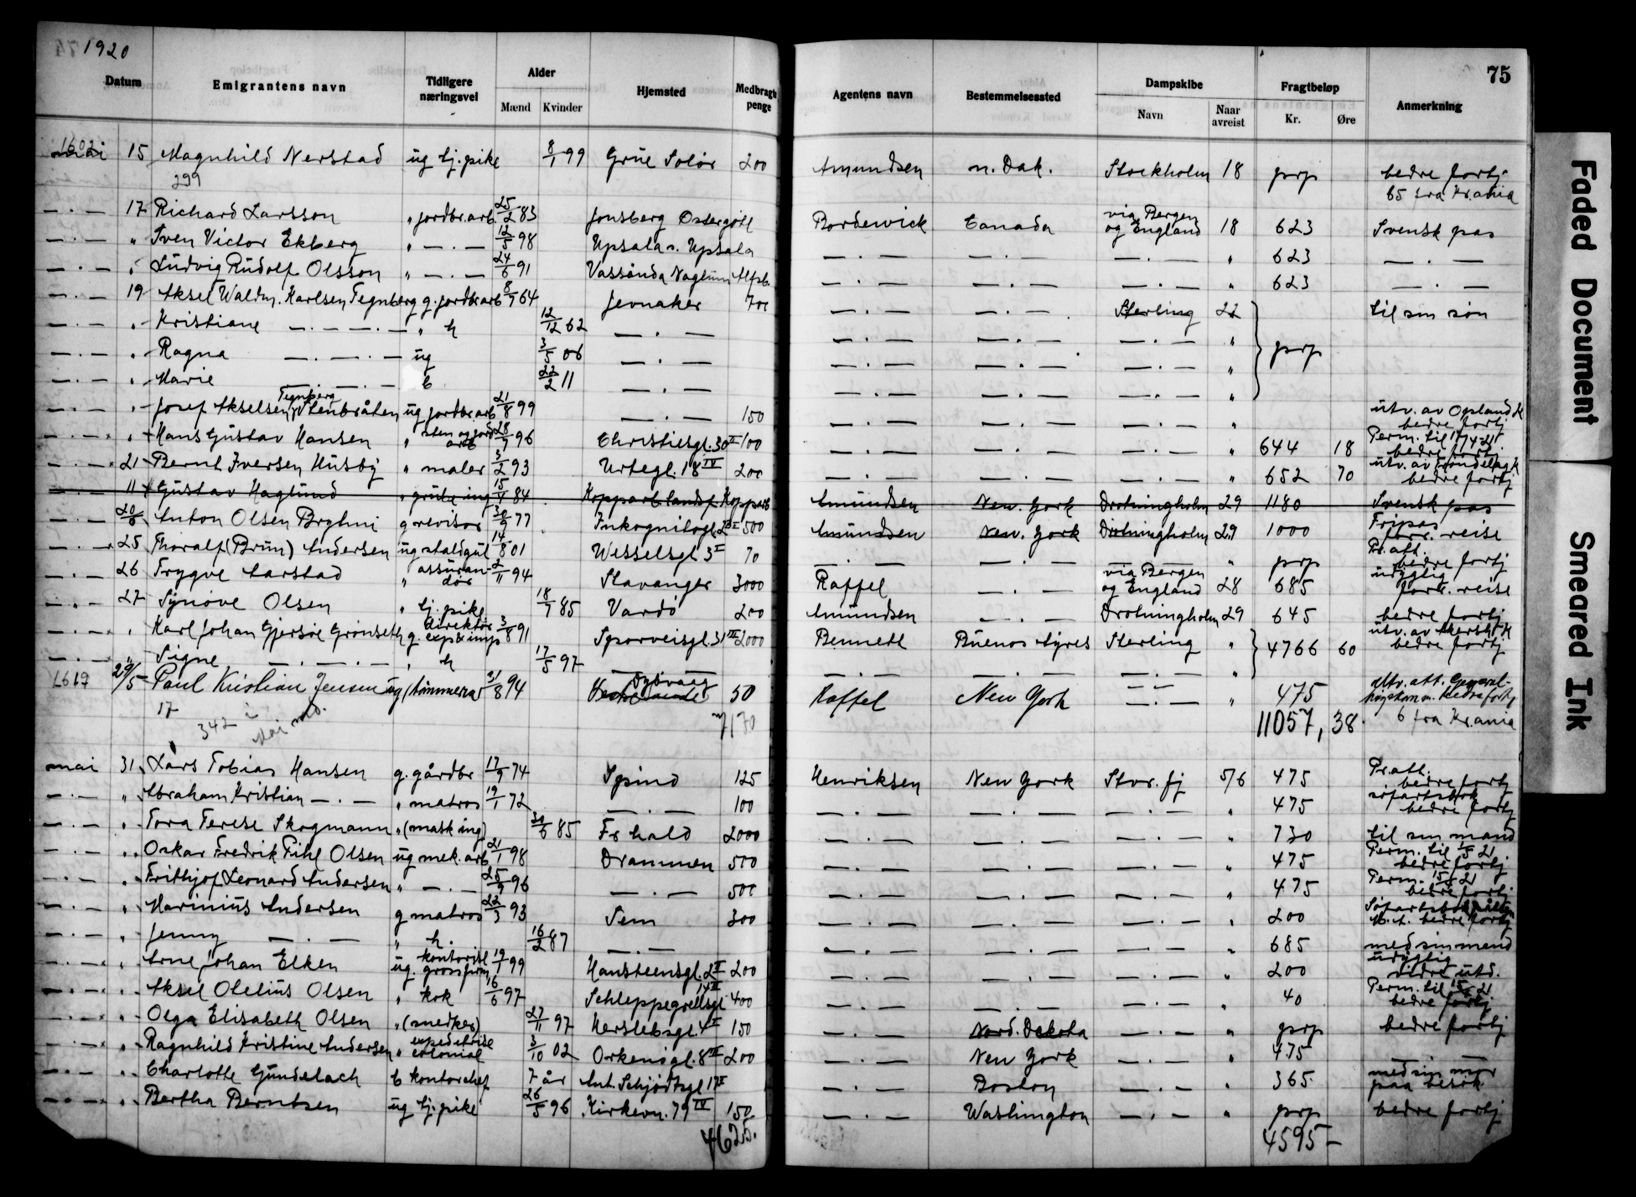 1920
75
Datum Emigrantens navn Tidligere næringsvei Alder Mænd Kvinder Hjemsted Medbragte penge Agentens navn Bestemmelsessted Dampskibe Navn Naar avreist Fragtbeløp Kr. Øre Anmerkning
15 Magnhild Nerstad ug tj.pike 8/1 99 Grue Solør 200 Amundsen n. Dak. Stockholm 18 prp bedre fortj.
299 65 fra Krania
—·— 17 Richard Larsson " jordbr.arb 25/2 83 Jonsberg Østergötl Bordewick Canada via Bergen og England 18 623 Svensk pas
—·— " Sven Victor Ekberg " —·— 12/5 98 Upsala n. Upsala —·— —·— —·— " 623 —·—
—·— " Ludvig Rudolf Olsson " —·— 24/6 91 Vassända Naglum Alfsb. —·— —·— —·— " 623 —·—
—·— 19 Aksel Waldm. Karlsen Tegnberg g. jordbr.arb 8/7 64 Jevnaker 700 —·— —·— Sterling 22 til sin søn
—·— " Kristiane —·—·— " h 12/12 62 —·— —·— —·— —·— "
—·— " Ragna —·—·— ug 3/5 06 —·— —·— —·— —·— " prp
—·— " Marie —·—·— b 22/2 11 —·— —·— —·— —·— "
—·— " Josef Akselsen Tegnberg Stenbråten ug jordbr.arb 21/8 99 —·— 150 —·— —·— —·— " utv. av Opland bedre fortj
—·— " Hans Gustav Hansen " sten og jord arb 28/7 96 Christiesgt. 30 II 100 —·— —·— —·— " 644 18 Perm. til 17/4-21 bedre fortj
—·— 21 Bernt Iversen Husby " maler 3/2 93 Urtegt. 18 IV 200 —·— —·— —·— " 652 70 utv. av Trøndelag bedre fortj
—·— 11 Gustav Haglund " grubeing 15/1 84 Kopparb. landsf. Kopparb Amundsen New York Drotningholm 29 1180 Svensk pas
20/5 Anton Olsen Brghni g revisor 30/9 77 Inkognitogt. 500 Amundsen New York Drotningholm 29 1000 Fripas forr. reise
—·— 25 Thoralf (Brun) Andersen ug staldgut 14/8 01 Wesselsgt 3 II 70 —·— —·— —·— " prp Pr.att. bedre fortj
—·— 26 Trygve Aarstad " assurandør 2/11 94 Stavanger 3000 Raffel —·— via Bergen og England 28 685 udygtig forr. reise
—·— 27 Synøve Olsen " tj.pike 18/7 85 Vardø 200 Amundsen —·— Drotningholm 29 645 bedre fortj
—·— " Karl Johan Gjersøe Grönseth g. direktør exp & imp 3/8 91 Sporveisgt. 31 III 2000 Bennett Buenos Ayres Sterling " 4766 60 utv. av Akershus bedre fortj
—·— " Signe —·—·— " h 17/5 97 —·— —·— —·— —·— "
1619 29/5 Paul Kristian Jensen ug (tømmerm) 31/8 94 Dybvaag 50 Raffel New York —·— " 475 utv. att. General- bedre fortj
17 342 i Mai md. 7170 11057,38 6 fra Krania
mai 31 Lars Tobias Hansen g. gårdbr 17/9 74 Spind 125 Henriksen New York Stvr.fj 5/6 475 Pr.att. bedre fortj
—·— " Abraham Kristian —·— " matros 19/1 72 —·— 100 —·— —·— —·— " 475 sjøfartsbok bedre fortj
—·— " Tora Terese Skogmann " (mask ing) 30/6 85 Fr hald 2000 —·— —·— —·— " 730 til sin mand
—·— " Oskar Fredrik Pihl Olsen ug mek. arb 21/1 98 Drammen 500 —·— —·— —·— " 475 Perm. til 1/5 21 bedre fortj
—·— " Frithjof Leonard Andersen " —·— 25/9 96 —·— 500 —·— —·— —·— " 475 Perm. 15/5 21 bedre fortj
—·— " Marinius Andersen g matros 22/3 93 Sem 300 —·— —·— —·— " 200 bedre fortj
—·— " Jenny —·— " h. 16/2 87 —·— —·— —·— —·— " 685 med sin mand
—·— " Arne Johan Elken ug. kontorist grossfirm 19/1 99 Hansteensgt. 2 II 200 —·— —·— —·— " 200 udygtig vidre utd.
—·— " Aksel Otelius Olsen " kok 16/6 97 Schleppegrellsgt 14 II 400 —·— —·— —·— " 40 Perm. til 15/5 21 bedre fortj
—·— " Olga Elisabeth Olsen " (snedker) 27/11 97 Herslebsgt. 4 II 150 —·— Nord. Dakota —·— " prp bedre fortj
—·— " Ragnhild Kristine Andersen " expeditrise colonial 3/10 02 Orknøigt. 8 III 200 —·— New York —·— " 475 —·—
—·— " Charlotte Gundelach b kontorchef 7 år Ant. Schjødtsgt 17 II —·— Boston —·— " 365 med sin mor paa besøk
—·— " Bertha Berntsen ug tj.pike 26/5 96 Kirkevn. 79 IV 150 —·— Washington —·— " prp bedre fortj
4625. 4595—
Faded Document
Smeared Ink